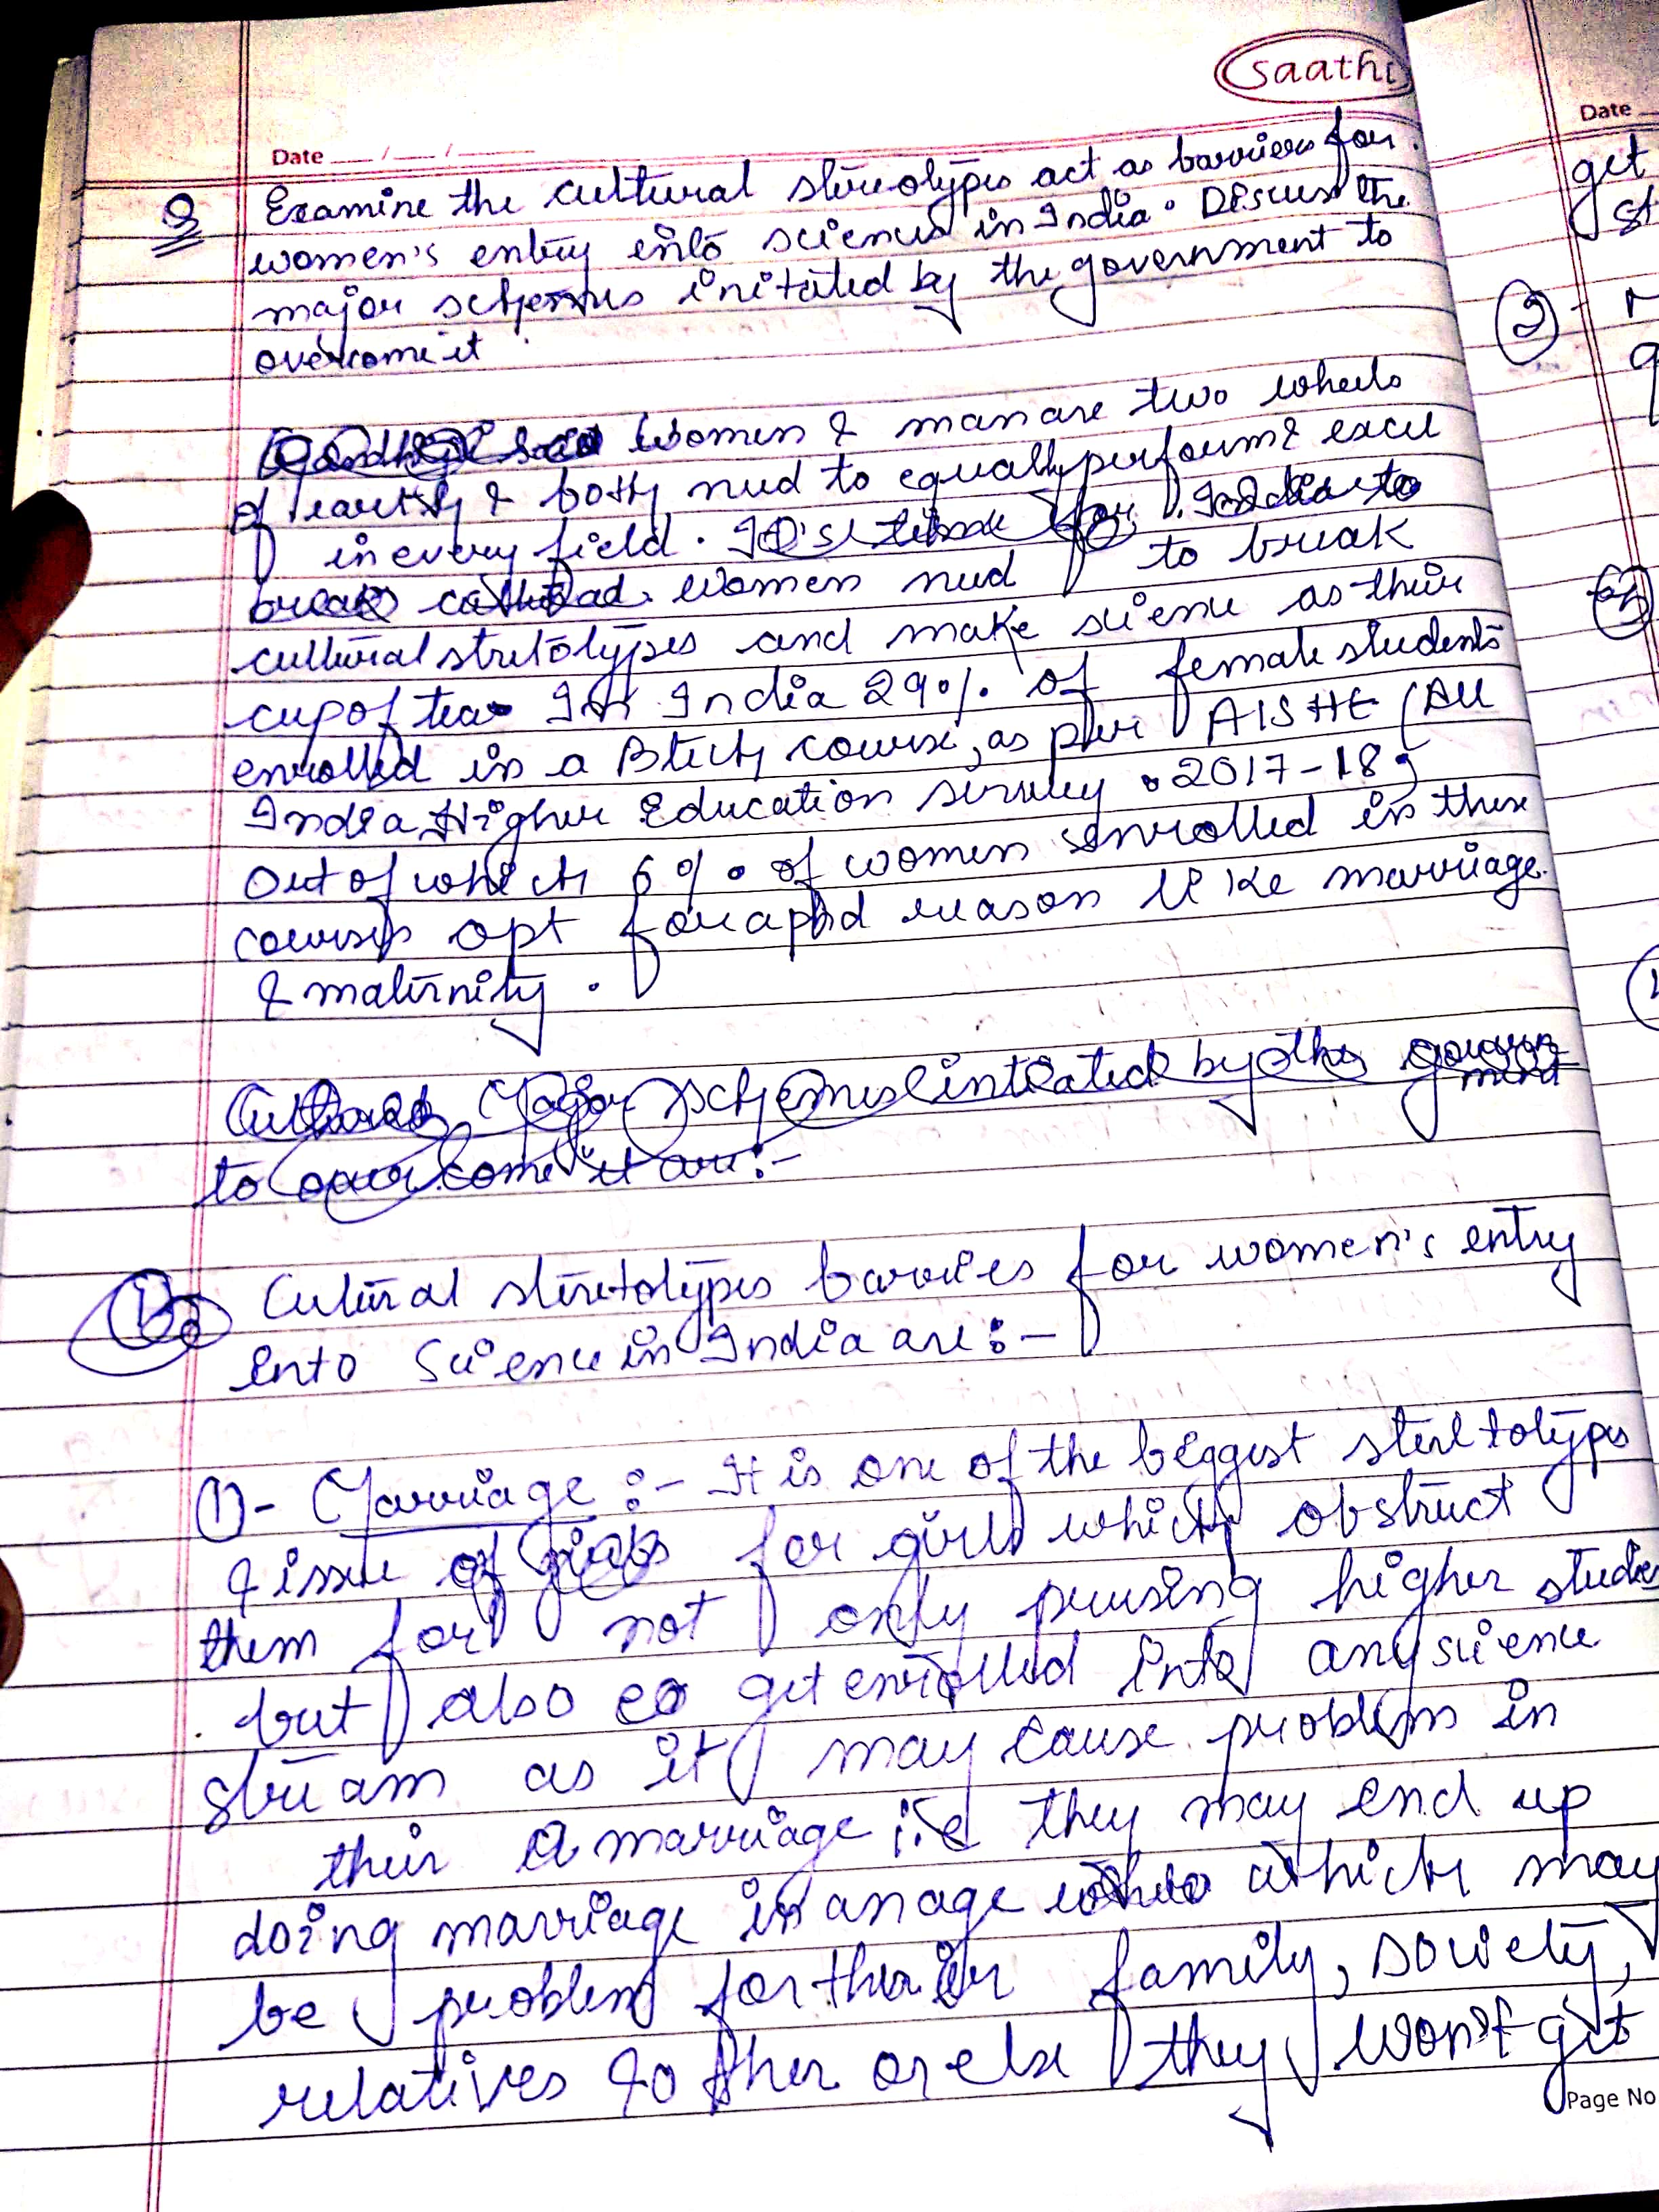 saathi
Date ___/___/___
Q Examine the cultural stereotypes act as barriers for
women's entry into science in India. Discuss the
major schemes initated by the government to
overcome it
Women & man are two wheels
of earth & both need to equally perform & excel
in every field. It's time for India to
break women need to break
cultural stretotypes and make science as their
cup of tea. In India 29% of female students
enrolled in a Btech course, as per AISHE (All
India Higher Education survey 2017-18)
Out of which 6% of women enrolled in these
courses opt for reason like marriage
& maternity.
Cultural Major schemes intiated by the govern
ment
to over come it are:-
Cultural steretotypes barries for women's entry
into Science in India are:-
1)- Marriage:- It is one of the biggest steretotypes
& issue of girls for girls which obstruct
them for not only perusing higher studies
but also get enrolled into any science
stream as it may cause problem in
their marriage i.e they may end up
doing marriage in an age which may
be problem for their family, society,
relatives & other or else they won't get
Page No
Date
get
st
2